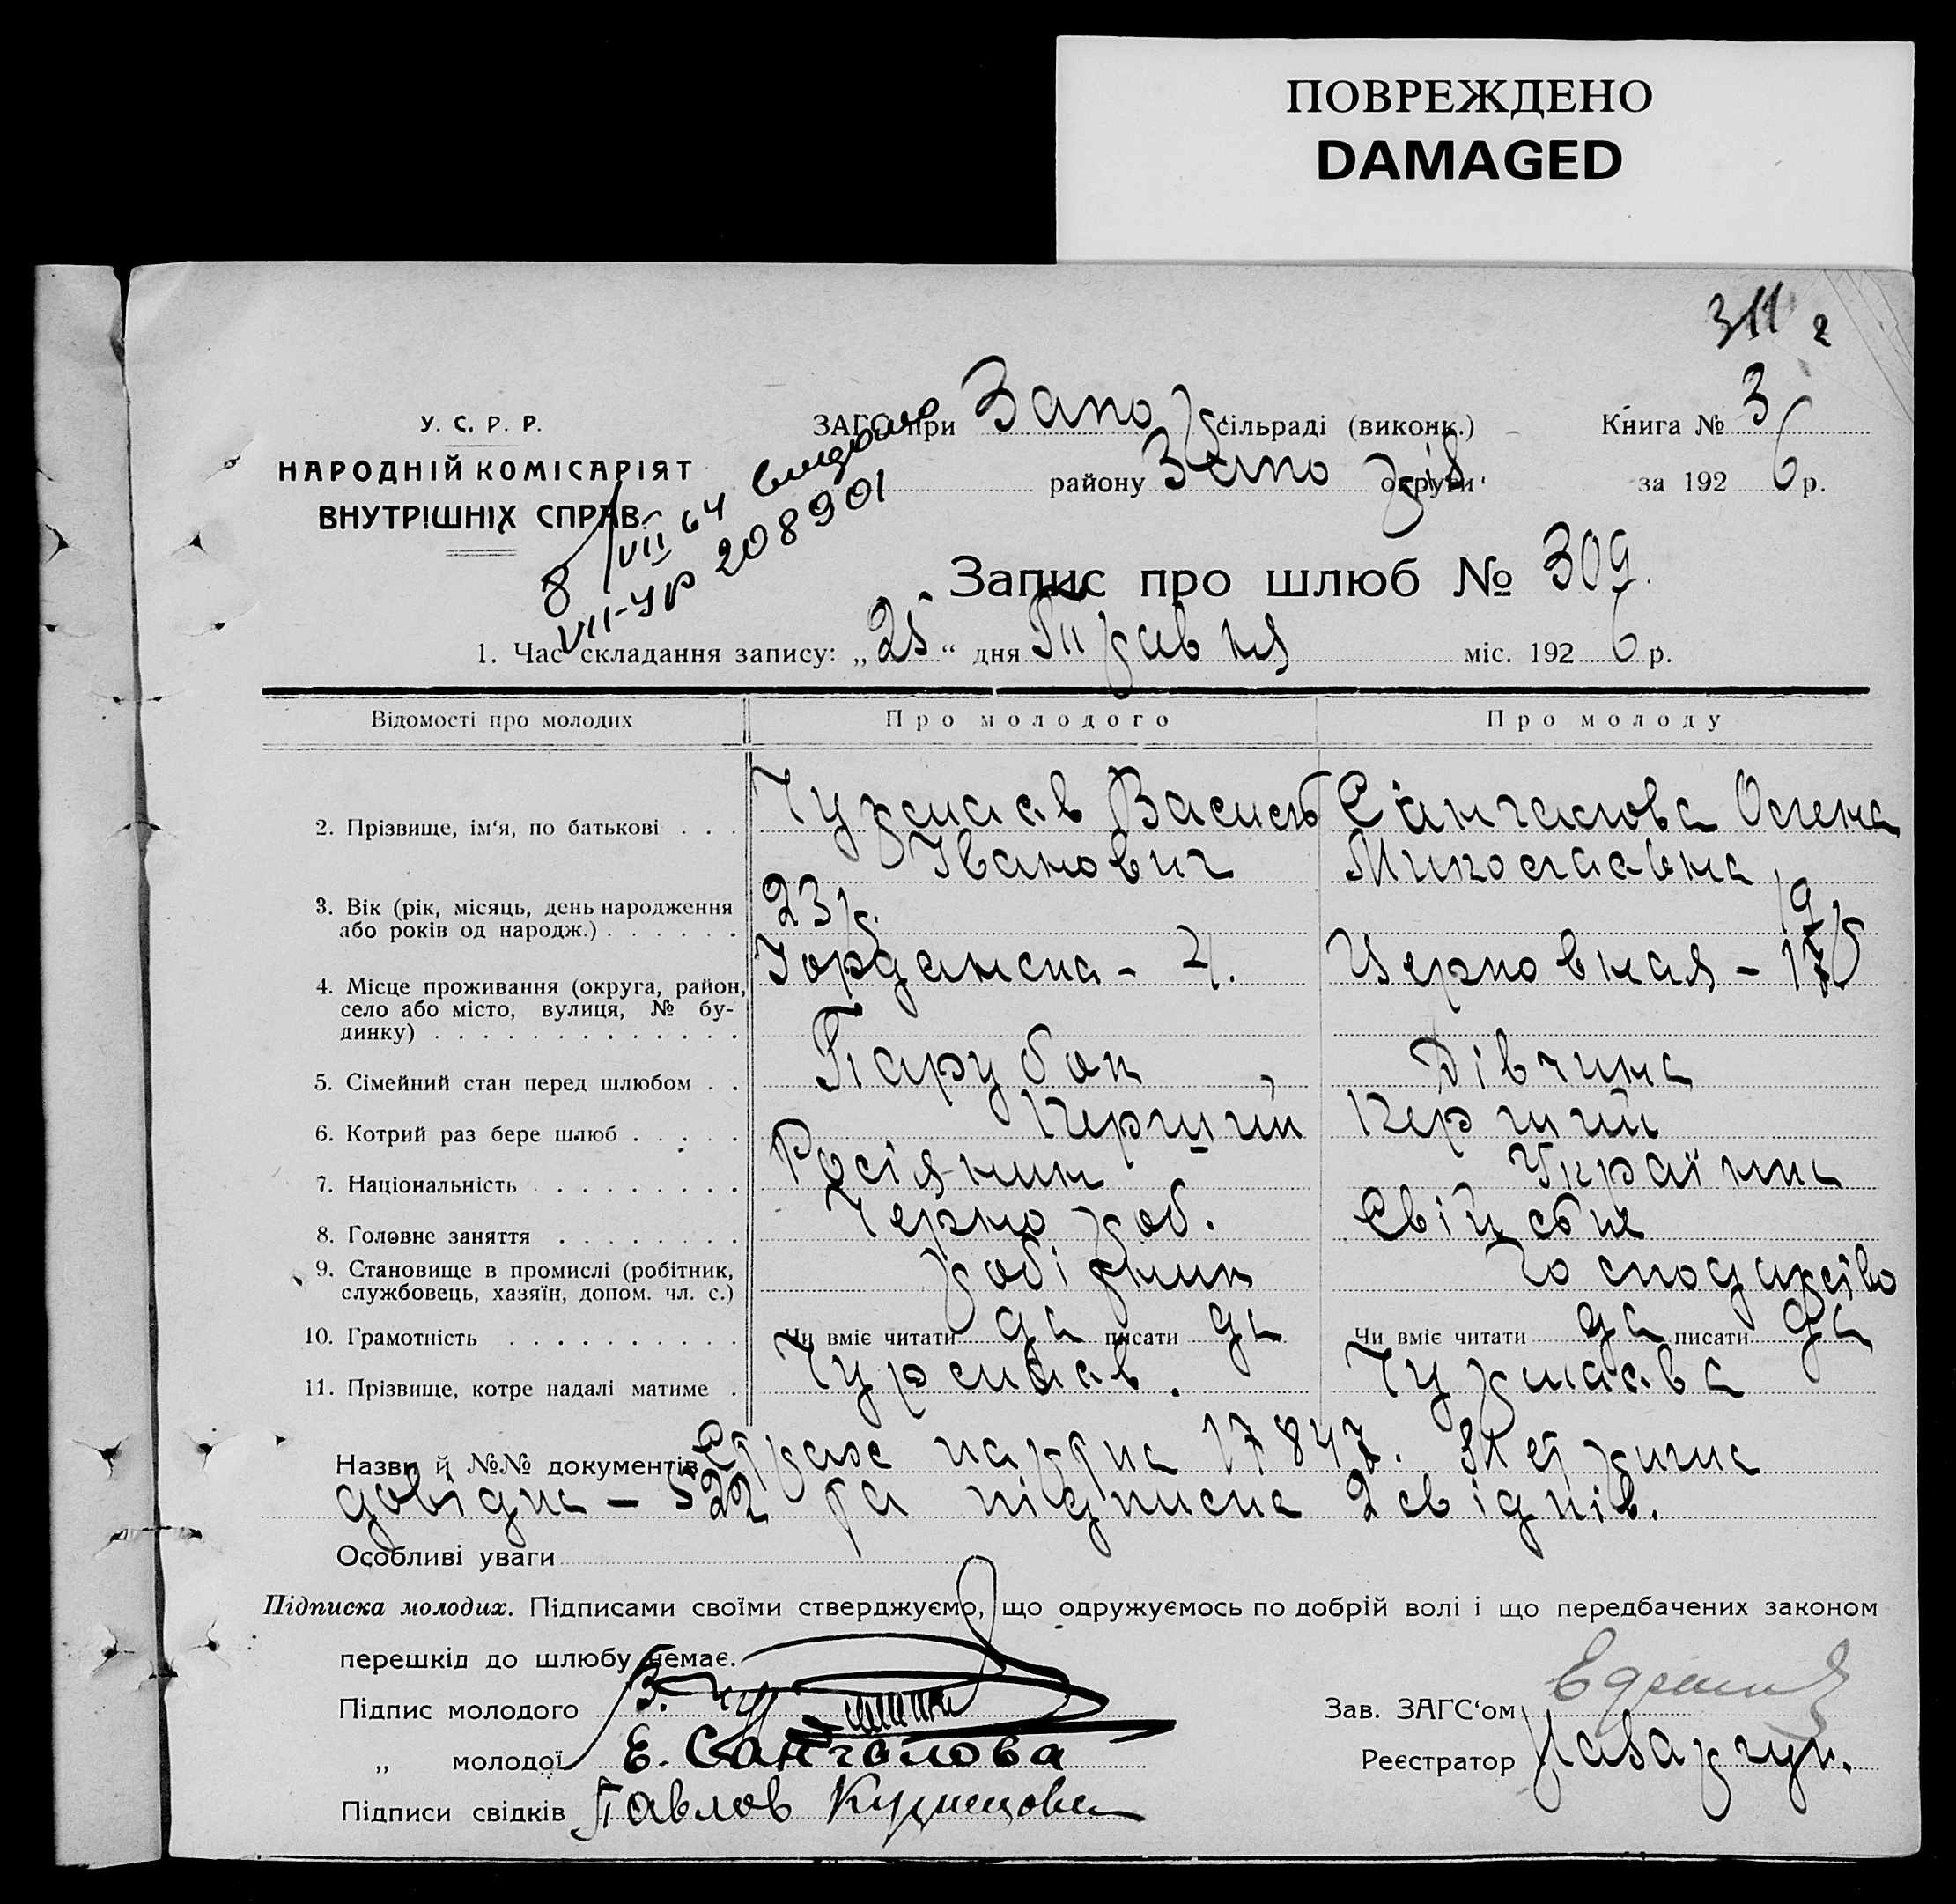 ПОВРЕЖДЕНО
DAMAGED
311
У. С. Р. Р.
НАРОДНІЙ КОМІСАРІЯТ
ВНУТРІШНІХ СПРАВ.
ЗАГС при Запор сільраді (виконк.)
району Запо різ округи
Книга № 3
за 192 6 р.
8/VII 64
VII-УР 208901
Запис про шлюб № 309.
1. Час складання запису: „25“ дня Травня міс. 192 6 р.
Відомості про молодих
Про молодого
Про молоду
2. Прізвище, ім‘я, по батькові . . .
Василь
Іванович
Санчалова Олена
Миколаївна
3. Вік (рік, місяць, день народження
або років од народж.) . . . . . .
23 р.
19
4. Місце проживання (округа, район,
село або місто, вулиця, № бу-
динку) . . . . . . . . . . . . .
5. Сімейний стан перед шлюбом . .
Парубок
Дівчина
6. Котрий раз бере шлюб . . . . .
Перший
Перший
7. Національність . . . . . . . . .
Росіянин
Українка
8. Головне заняття . . . . . . . .
Чернороб.
Свійське
9. Становище в промислі (робітник,
службовець, хазяїн, допом. чл. с.)
робітник
господарство
10. Грамотність . . . . . . . . . .
Чи вміє читати да писати да
Чи вміє читати да писати да
11. Прізвище, котре надалі матиме .
Назви й №№ документів Страх картка 17847. Метрична
довідка – 522 та підписка 2 свідків.
Особливі уваги
Підписка молодих. Підписами своїми стверджуємо, що одружуємось по добрій волі і що передбачених законом
перешкід до шлюбу немає.
Підпис молодого
„ молодої Е. Санчалова
Підписи свідків Павлов Кузнецова
Зав. ЗАГС‘ом
Реєстратор Назарчук.